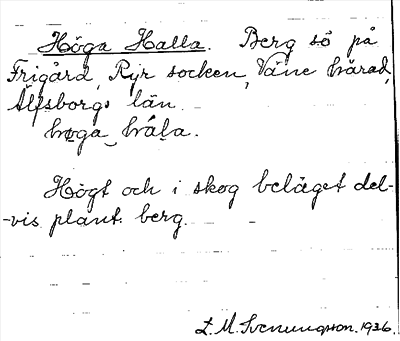 Höga Halla. Berg sö på
Frigård, Ryr socken, Väne härad,
Älfsborgs län.
høga hála.
Högt och i skog beläget del-
-vis plant berg.
L. M. Svenungsson. 1936.